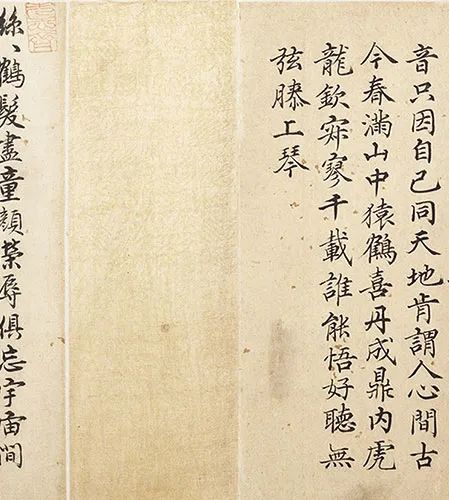 音只因自己同天地肯謂人心間古
今春滿山中猿鶴喜丹成鼎內虎
龍欽寂寥千載誰能悟好聽無
弦膝上琴
絲絲鶴髮盡童顏榮辱俱忘宇宙間